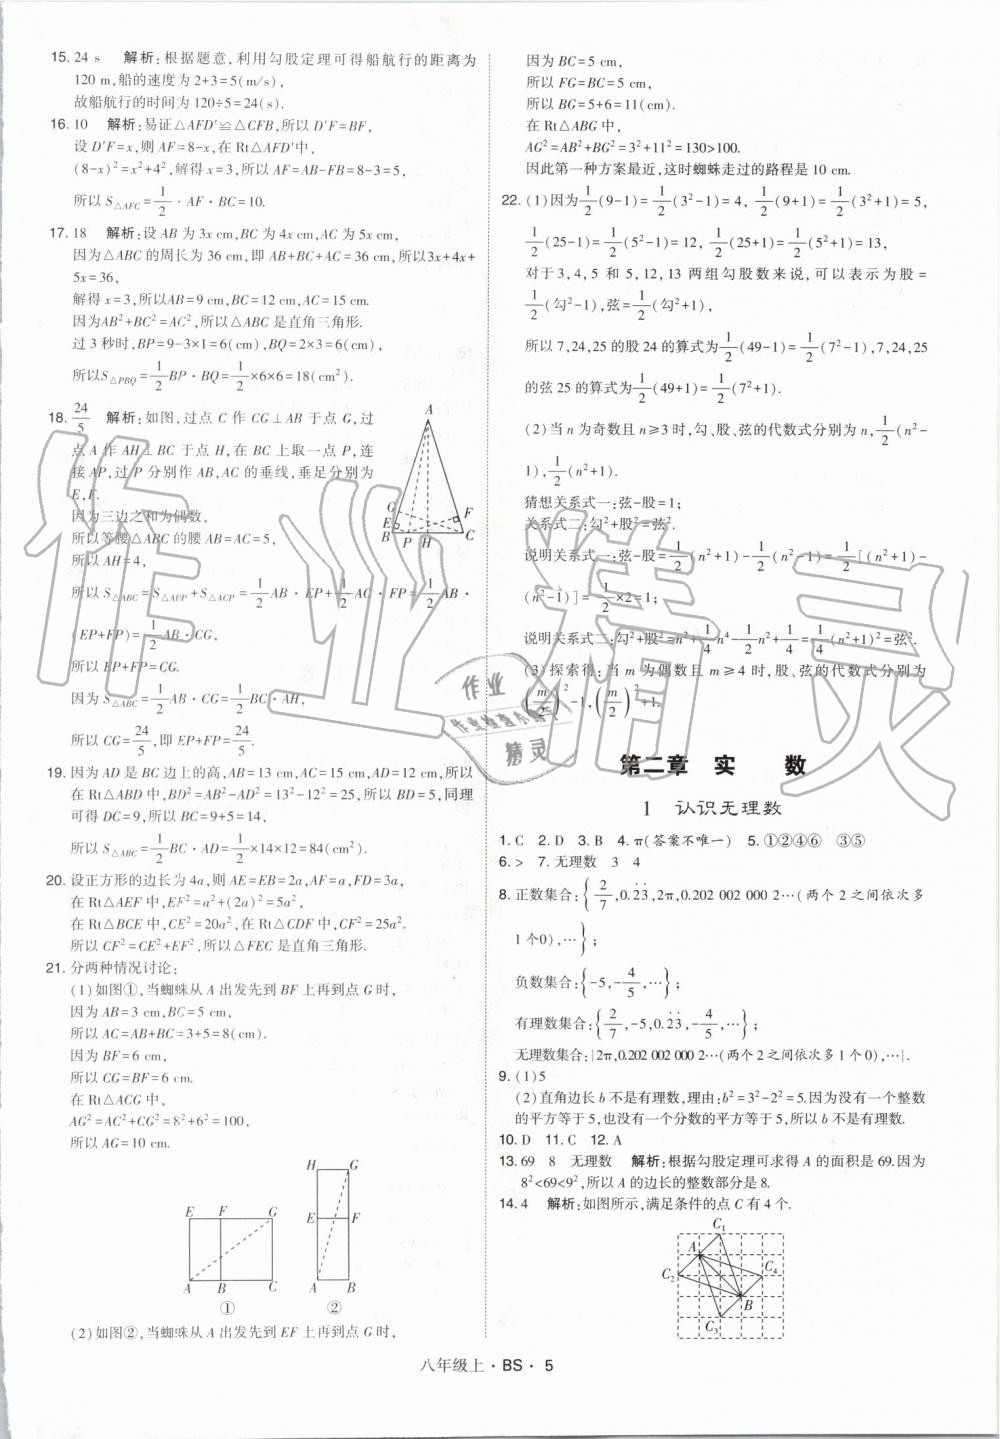 15. 24 s 解析:根据题意,利用勾股定理可得船航行的距离为
120 m,船的速度为2+3=5(m/s),
故船航行的时间为120÷5=24(s).
16. 10 解析:易证△AFD′≌△CFB,所以D′F=BF,
设D′F=x,则AF=8-x,在Rt△AFD′中,
(8-x)²=x²+4²,解得x=3,所以AF=AB-FB=8-3=5,
所以S△AFC=1/2·AF·BC=10.
17. 18 解析:设AB为3x cm,BC为4x cm,AC为5x cm,
因为△ABC的周长为36 cm,即AB+BC+AC=36 cm,所以3x+4x+
5x=36,
解得x=3,所以AB=9 cm,BC=12 cm,AC=15 cm.
因为AB²+BC²=AC²,所以△ABC是直角三角形.
过3秒时,BP=9-3×1=6(cm),BQ=2×3=6(cm),
所以S△PBQ=1/2BP·BQ=1/2×6×6=18(cm²).
18. 24/5 解析:如图,过点C作CG⊥AB于点G,过
点A作AH⊥BC于点H,在BC上取一点P,连
接AP,过P分别作AB,AC的垂线,垂足分别为
E,F.
因为三边之和为偶数,
所以等腰△ABC的腰AB=AC=5,
所以AH=4,
所以S△ABC=S△ABP+S△ACP=1/2AB·EP+1/2AC·FP=1/2AB·
(EP+FP)=1/2AB·CG,
所以EP+FP=CG.
因为S△ABC=1/2AB·CG=1/2BC·AH,
所以CG=24/5,即EP+FP=24/5.
A
G
E
B P H C
F
19. 因为AD是BC边上的高,AB=13 cm,AC=15 cm,AD=12 cm,所以
在Rt△ABD中,BD²=AB²-AD²=13²-12²=25,所以BD=5,同理
可得DC=9,所以BC=9+5=14,
所以S△ABC=1/2BC·AD=1/2×14×12=84(cm²).
20. 设正方形的边长为4a,则AE=EB=2a,AF=a,FD=3a,
在Rt△AEF中,EF²=a²+(2a)²=5a²,
在Rt△BCE中,CE²=20a²,在Rt△CDF中,CF²=25a².
所以CF²=CE²+EF²,所以△FEC是直角三角形.
21. 分两种情况讨论:
(1)如图①,当蜘蛛从A出发先到BF上再到点G时,
因为AB=3 cm,BC=5 cm,
所以AC=AB+BC=3+5=8(cm).
因为BF=6 cm,
所以CG=BF=6 cm.
在Rt△ACG中,
AG²=AC²+CG²=8²+6²=100,
所以AG=10 cm.
E F G
A B C
①
H G
E F
A B
②
(2)如图②,当蜘蛛从A出发先到EF上再到点G时,
因为BC=5 cm,
所以FG=BC=5 cm,
所以BG=5+6=11(cm).
在Rt△ABG中,
AG²=AB²+BG²=3²+11²=130>100.
因此第一种方案最近,这时蜘蛛走过的路程是10 cm.
22. (1)因为1/2(9-1)=1/2(3²-1)=4, 1/2(9+1)=1/2(3²+1)=5,
1/2(25-1)=1/2(5²-1)=12, 1/2(25+1)=1/2(5²+1)=13,
对于3,4,5和5,12,13两组勾股数来说,可以表示为股=
1/2(勾²-1),弦=1/2(勾²+1),
所以7,24,25的股24的算式为1/2(49-1)=1/2(7²-1),7,24,25
的弦25的算式为1/2(49+1)=1/2(7²+1).
(2)当n为奇数且n≥3时,勾、股、弦的代数式分别为n,1/2(n²-
1),1/2(n²+1).
猜想关系式一:弦-股=1;
关系式二:勾²+股²=弦².
说明关系式一:弦-股=1/2(n²+1)-1/2(n²-1)=1/2[(n²+1)-
(n²-1)]=1/2×2=1;
说明关系式二:勾²+股²=n²+1/4n⁴-1/2n²+1/4=1/4(n²+1)²=弦².
(3)探索得:当m为偶数且m≥4时,股、弦的代数式分别为
(m/2)²-1,(m/2)²+1.
第二章 实 数
1 认识无理数
1. C 2. D 3. B 4. π(答案不唯一) 5. ①②④⑥ ③⑤
6. > 7. 无理数 3 4
8. 正数集合:{2/7,0.2̇3̇,2π,0.202 002 000 2…(两个2之间依次多
1个0),…};
负数集合:{-5,-4/5,…};
有理数集合:{2/7,-5,0.2̇3̇,-4/5,…};
无理数集合:{2π,0.202 002 000 2…(两个2之间依次多1个0),…}.
9. (1)5
(2)直角边长b不是有理数,理由:b²=3²-2²=5.因为没有一个整数
的平方等于5,也没有一个分数的平方等于5,所以b不是有理数.
10. D 11. C 12. A
13. 69 8 无理数 解析:根据勾股定理可求得A的面积是69.因为
8²<69<9²,所以A的边长的整数部分是8.
14. 4 解析:如图所示,满足条件的点C有4个.
C₁
A
C₂ C₄
B
C₃
作业精灵
作业
作业检查小帮手
精灵
八年级上·BS·5